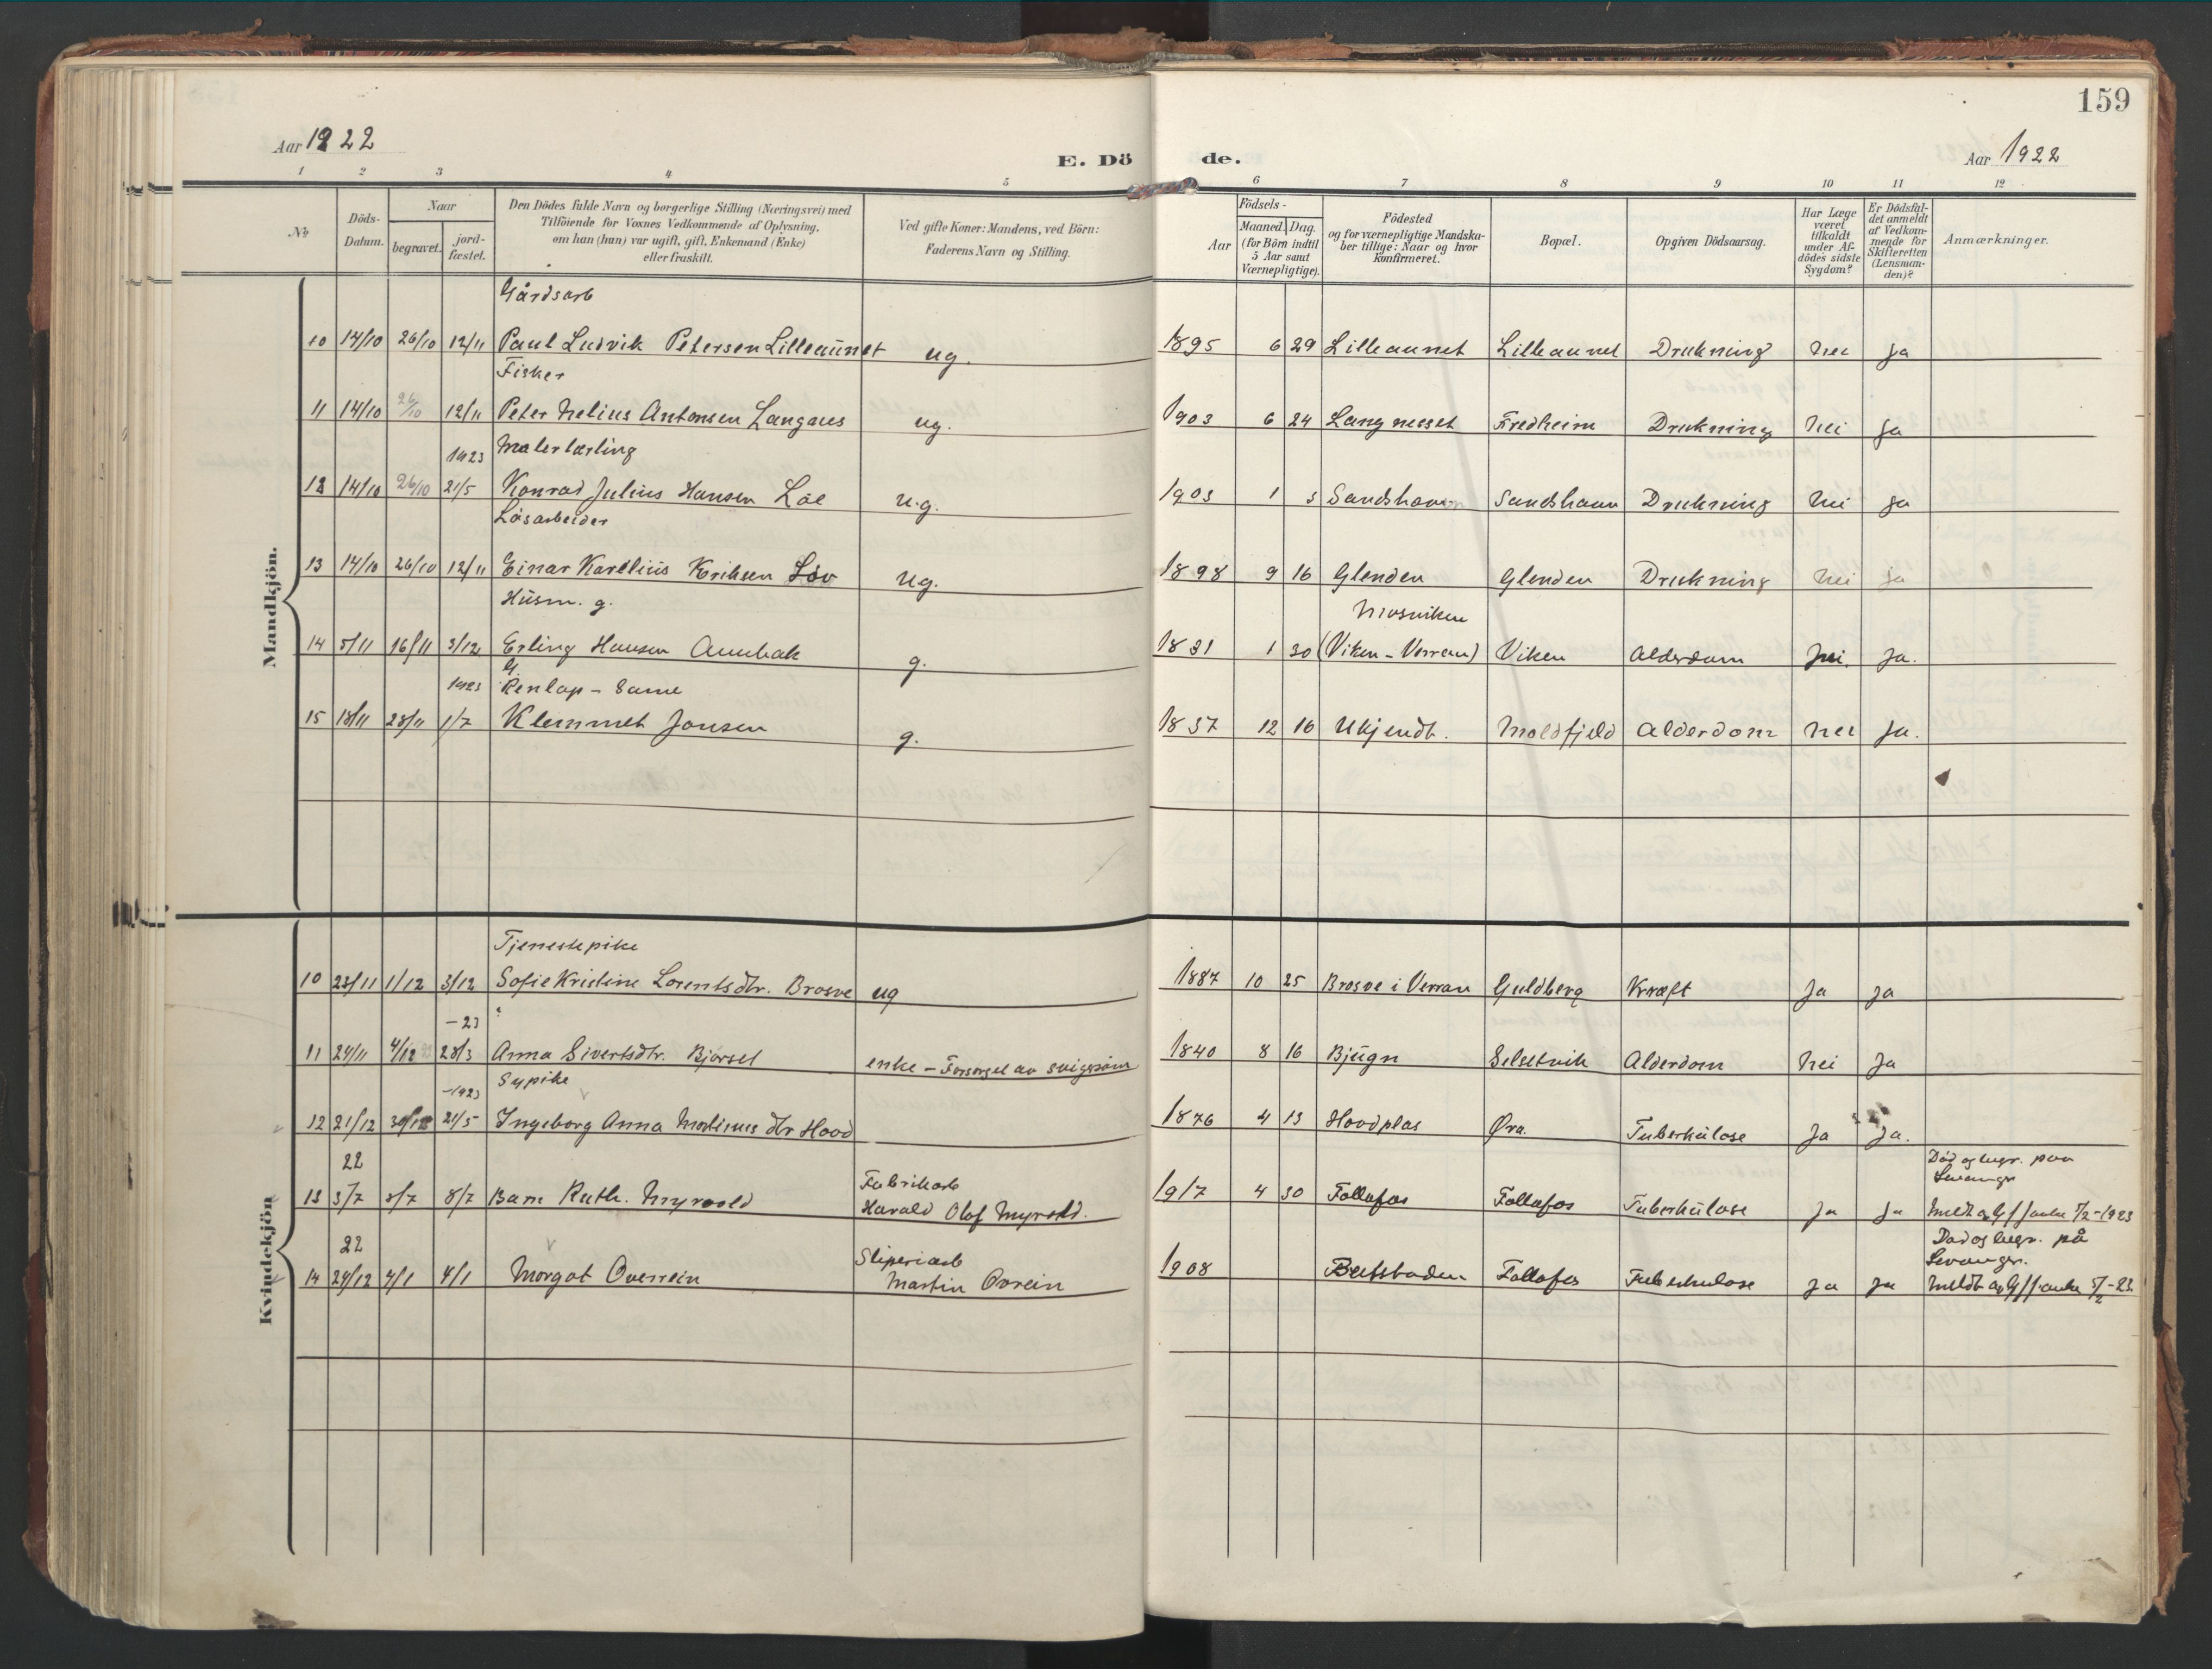 159
Aar 1922
E. Dö de.
Aar 1922
1 2 3 4 5 6 7 8 9 10 11 12
No
Döds-
Datum.
Naar
begravet.
jord-
fæstet.
Den Dödes fulde Navn og borgerlige Stilling (Næringsvei) med
Tilföiende for Voxnes Vedkommende af Oplysning,
om han (hun) var ugift, gift, Enkemand (Enke)
eller fraskilt.
Ved gifte Koner: Mandens, ved Börn:
Faderens Navn og Stilling.
Födsels-
Aar
Maaned. Dag.
(for Börn indtil
5 Aar samt
Værnepligtige).
Födested
og for værnepligtige Mandska-
ber tillige: Naar og hvor
Konfirmeret.
Bopæl.
Opgiven Dödsaarsag.
Har Læge
været
tilkaldt
under Af-
dödes sidste
Sygdom?
Er Dödsfal-
det anmeldt
af Vedkom-
mende for
Skifteretten
(Lensman-
den)?
Anmærkninger.
Mandkjön.
Gårdsarb
10 14/10 26/10 12/11 Paul Ludvik Petersen Lilleaunet ug. 1895 6 29 Lilleaunet Lilleaunet Drukning nei ja
Fisker
11 14/10 26/10 12/11 Peter Nelius Antonsen Langnes ug. 1903 6 24 Langnesset Fredheim Drukning nei ja
1923 Malerlærling
12 14/10 26/10 21/5 Konrad Julius Hansen u.g. 1903 1 3 Sandshavn Sandshavn Drukning nei ja
Løsarbeider
13 14/10 26/10 12/11 Einar Karelius Eriksen Løv ug. 1898 9 16 Glenden Glenden Drukning nei ja
Husm. g. Mosviken
14 5/11 16/11 3/12 Erling Hansen g. 1831 1 30 (Viken - Verran) Viken Alderdom nei. ja.
1923 Renlap - Same
15 18/11 28/11 1/7 Klemmet Jonsen g. 1837 12 16 Ukjendt. Moldfjeld Alderdom nei ja.
Kvindekjön
Tjenestepike
10 23/11 1/12 3/12 Sofie Kristine Lorentsdtr. Brosve ug 1887 10 25 Brosve i Verran Guldberg Kræft ja ja
-23
11 24/11 4/12 28/3 Anna Sivertsdtr. Bjørsel enke - Forsørget av svigersøn 1840 8 16 Bjugn Selsetvik Alderdom nei ja
-1923 Sypike
12 21/12 30/12 21/5 Ingeborg Anna dtr Hovd 1876 4 13 Hovdplas Øra. Tuberkulose ja ja.
22 Fabrikarb Død og begr. paa
Levanger
13 3/7 8/7 8/7 Barn Ruth. Myrvold Harald Olof Myrvold. 1917 4 30 Follafos Follafos Tuberkulose ja ja meldt 5/2-1923
22 Sliperiarb Død og begr. på
Levanger.
14 24/12 4/1 4/1 Margot Overrein Martin Ovrein 1908 Beitstaden Follafos Tuberkulose ja ja meldt 5/2-23.